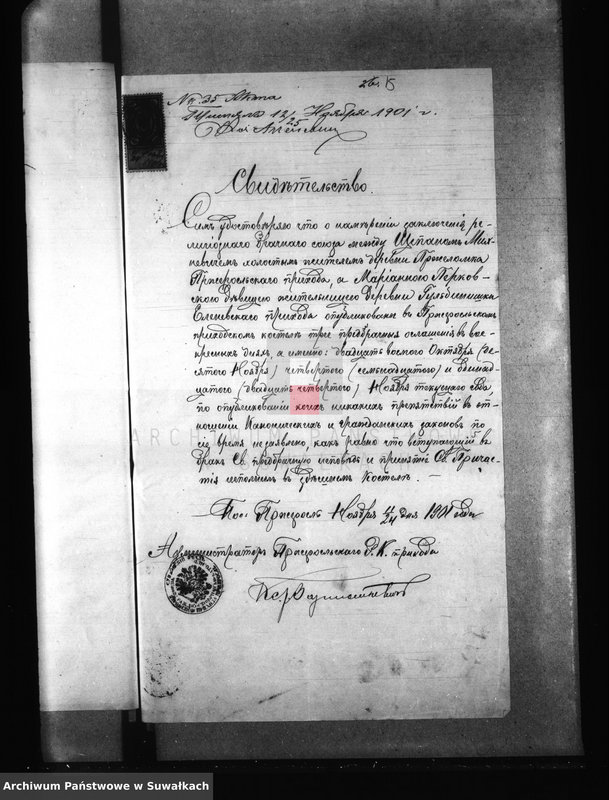 № 35 Акта
12/25 Ноября 1901 г.
Свидѣтельство.
Симъ удостовѣряю что о намѣреніи заключенія ре-
лигіознаго брачнаго союза между Щепаномъ Мих-
невичемъ холостымъ жителемъ деревни Прже­ломка
Пржерослскаго прихода, а Маріанною Перков-
скою дѣвицею жительницею деревни Гульбенишки
Еленевскаго прихода опубликованы въ Пржерослскомъ
приходскомъ костелѣ три предбрачныя оглашенія въ вос-
кресныхъ дняхъ, а именно: двадцать восьмого Октября (де-
сятого Ноября) четвертого (семьнадцатого) и одинад-
цатого (двадцать четвертого) Ноября текущего года,
по опубликованіи коихъ никакихъ препятствій въ от-
ношеніи Каноническихъ и гражданскихъ законовъ по
сіе время не заявлено, какъ равно что вступающій въ
бракъ Св. предбрачную исповѣдь и принятіе Св. Прича-
стія исполнилъ въ здѣшнемъ костелѣ. —
Пос. Пржеросль Ноября 11/24 дня 1901 года
Администраторъ Пржерослскаго Р. К. прихода
ARCH
Archiwum Państwowe w Suwałkach